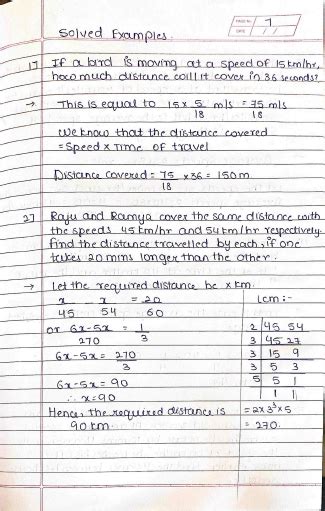 PAGE NO. 7
DATE / /
Solved Examples.
1) If a bird is moving at a speed of 15km/hr,
how much distance will it cover in 36 seconds?
→ This is equal to 15 x 5/18 m/s = 75/18 m/s
We know that the distance covered
= Speed x Time of travel
Distance Covered = 75/18 x 36 = 150m
2) Raju and Ramya cover the same distance with
the speeds 45km/hr and 54km/hr respectively.
Find the distance travelled by each, if one
takes 20 mins longer than the other.
→ Let the required distance be x km.
x/45 - x/54 = 20/60
or 6x-5x/270 = 1/3
6x-5x = 270/3
6x-5x = 90
∴ x=90
Hence, the required distance is
90 km.
lcm :-
2 | 45 54
3 | 45 27
3 | 15 9
3 | 5 3
5 | 5 1
| 1 1
= 2x3³x5
= 270.